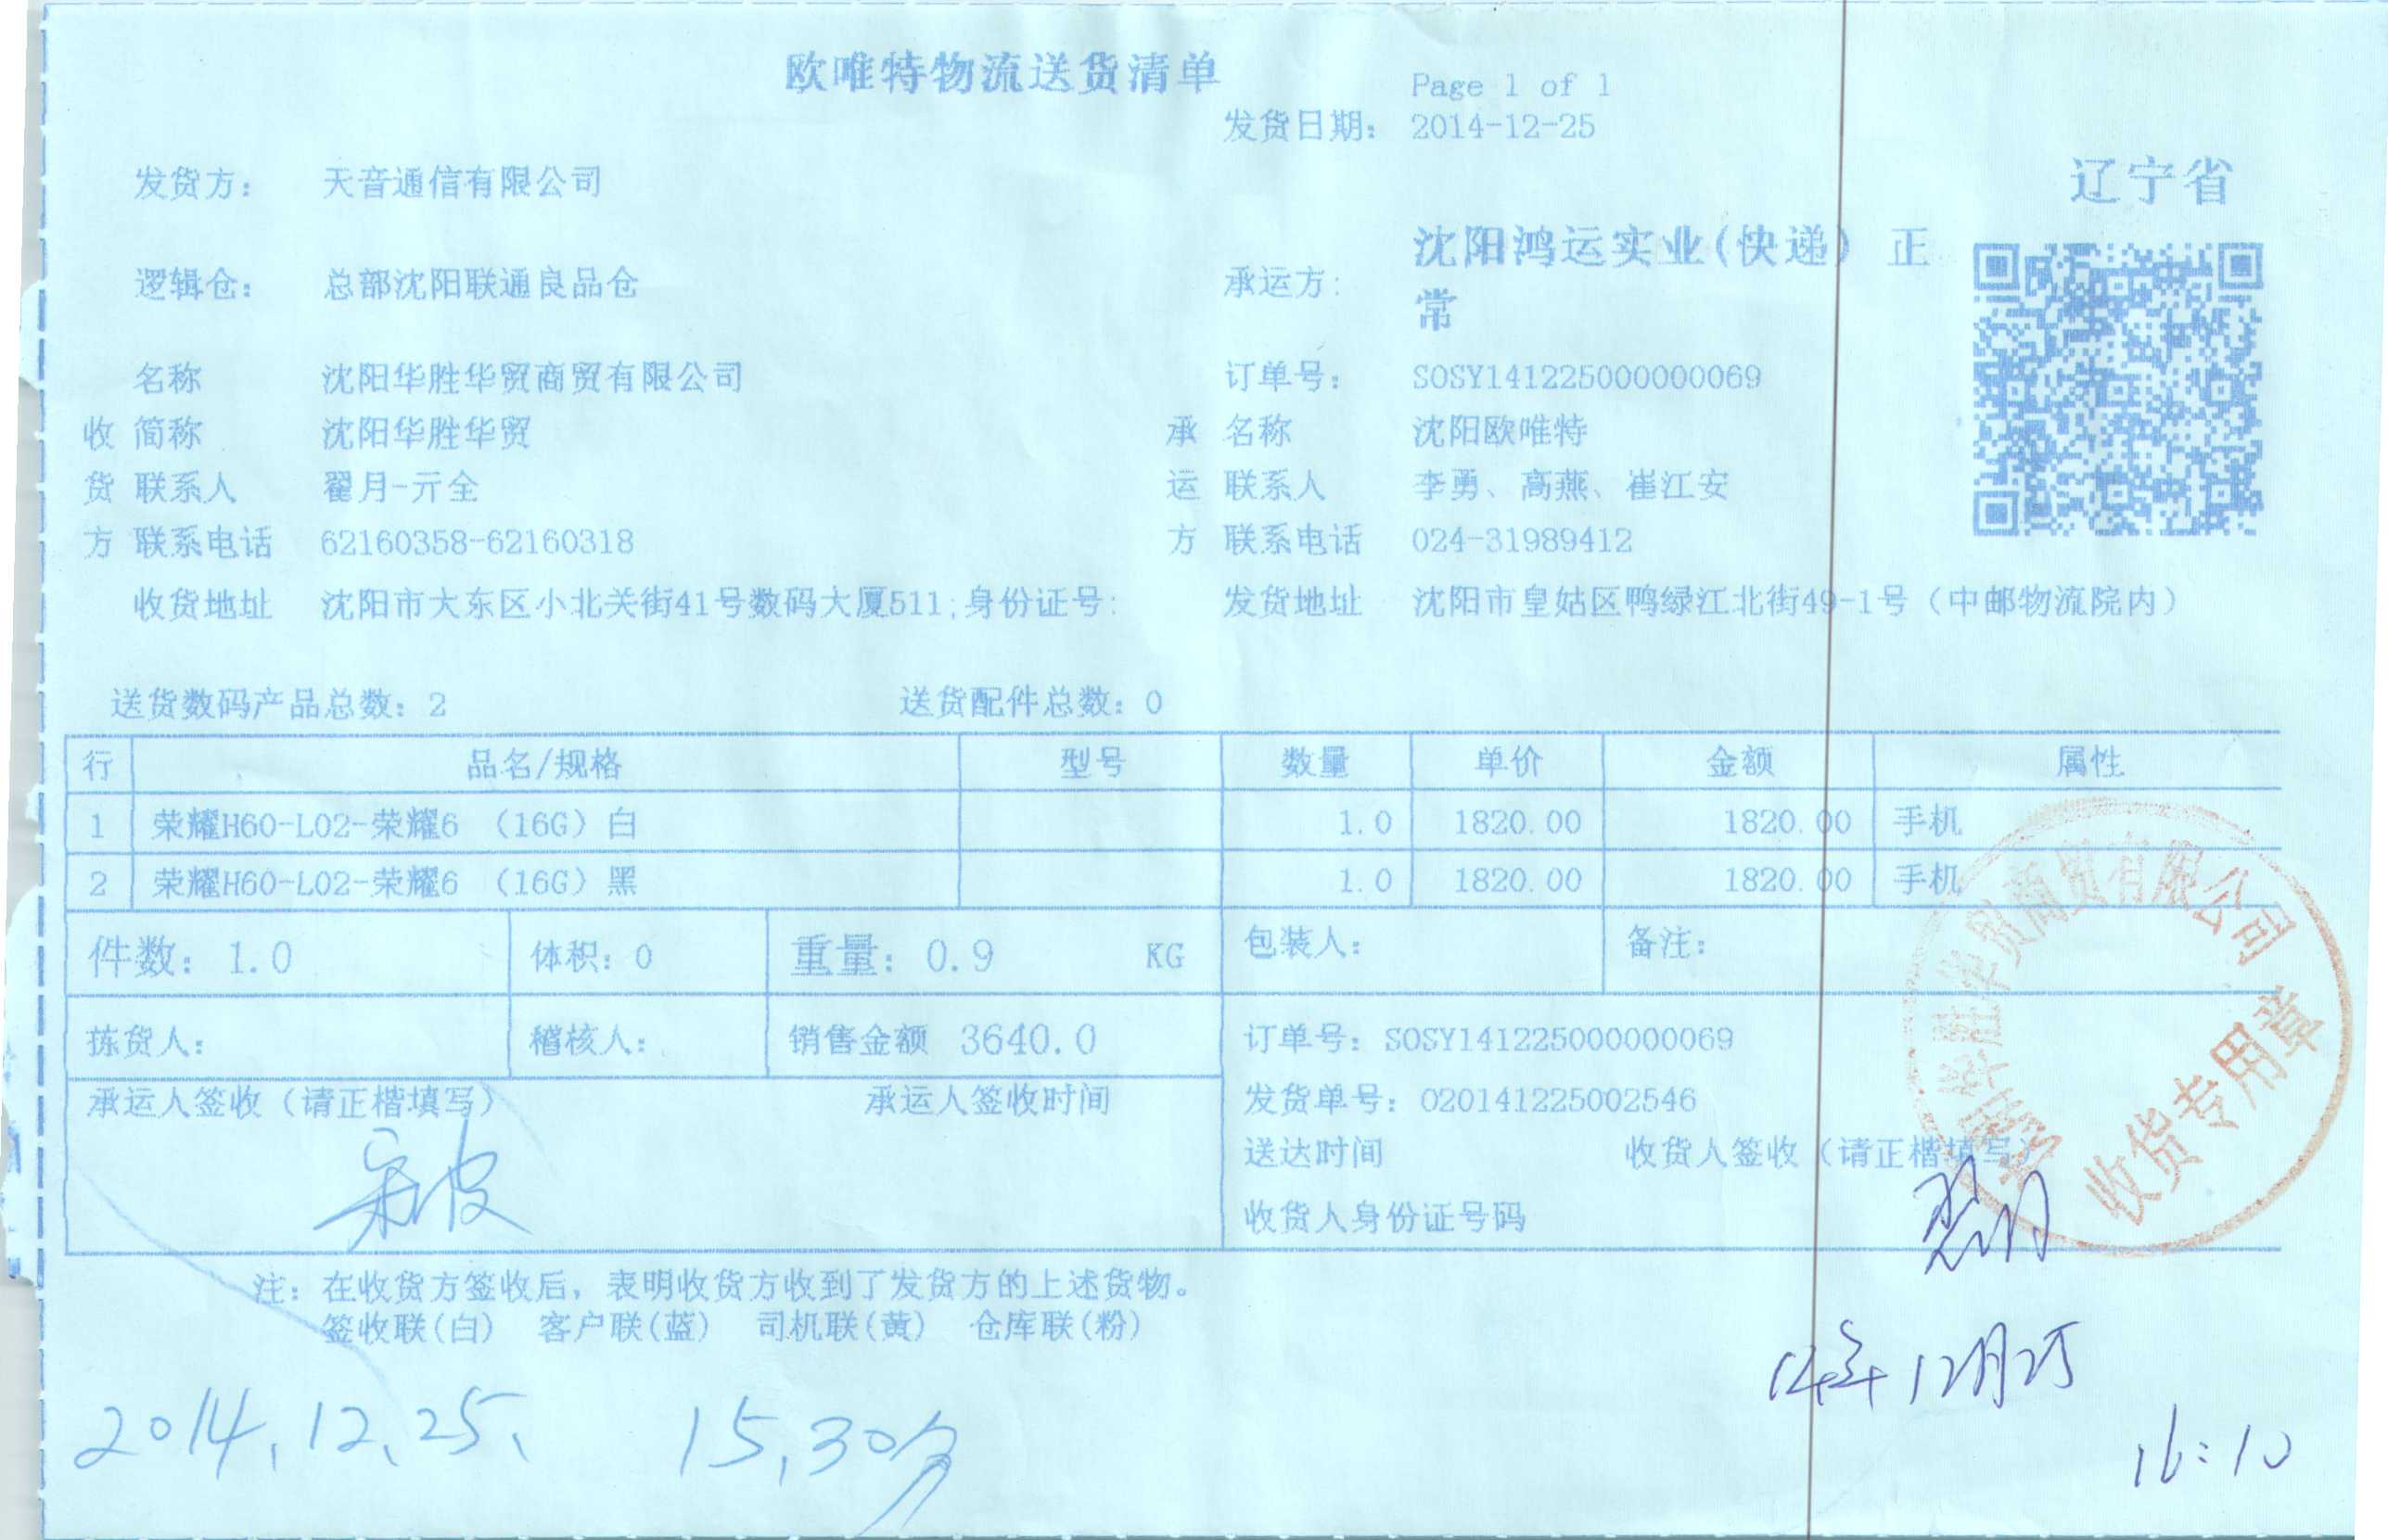 欧唯特物流送货清单
Page 1 of 1
发货日期: 2014-12-25
辽宁省
发货方: 天音通信有限公司
逻辑仓: 总部沈阳联通良品仓
承运方: 沈阳鸿运实业(快递) 正
常
名称 沈阳华胜华贸商贸有限公司 订单号: SOSY141225000000069
收 简称 沈阳华胜华贸 承 名称 沈阳欧唯特
货 联系人 翟月-亓全 运 联系人 李勇、高燕、崔江安
方 联系电话 62160358-62160318 方 联系电话 024-31989412
收货地址 沈阳市大东区小北关街41号数码大厦511;身份证号: 发货地址 沈阳市皇姑区鸭绿江北街49-1号（中邮物流院内）
送货数码产品总数: 2 送货配件总数: 0
行 品名/规格 型号 数量 单价 金额 属性
1 荣耀H60-L02-荣耀6 （16G）白 1.0 1820.00 1820.00 手机
2 荣耀H60-L02-荣耀6 （16G）黑 1.0 1820.00 1820.00 手机
件数: 1.0 体积: 0 重量: 0.9 KG 包装人: 备注:
拣货人: 稽核人: 销售金额 3640.0 订单号: SOSY141225000000069
承运人签收（请正楷填写） 承运人签收时间 发货单号: 020141225002546
送达时间 收货人签收（请正楷填写）
收货人身份证号码
华胜华贸商贸有限公司
收货专用章
注: 在收货方签收后，表明收货方收到了发货方的上述货物。
签收联(白) 客户联(蓝) 司机联(黄) 仓库联(粉)
14年12月25
2014.12.25. 15.30分
16:10